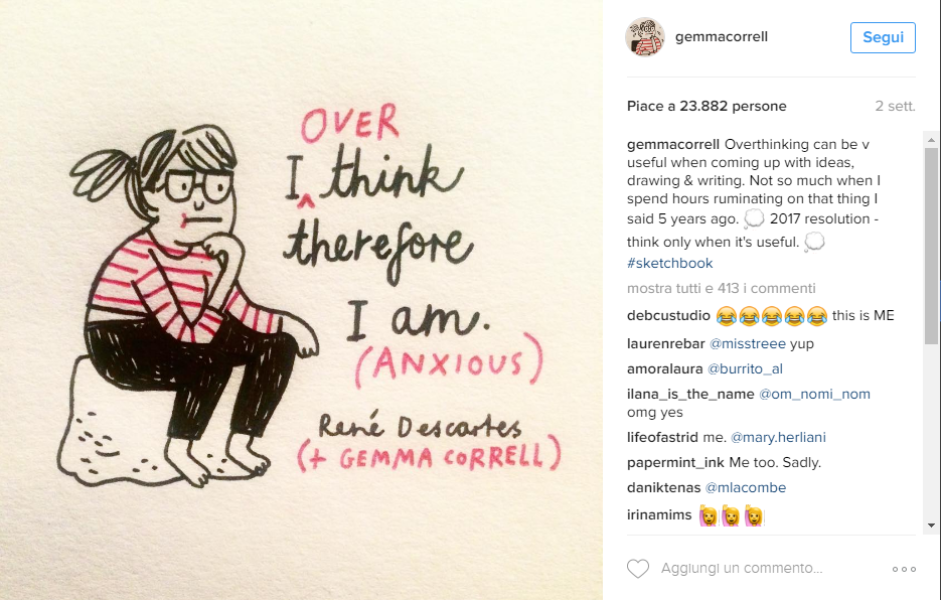 OVER
I think
therefore
I am.
(ANXIOUS)
René Descartes
(+ GEMMA CORRELL)
gemmacorrell
Segui
Piace a 23.882 persone
2 sett.
gemmacorrell Overthinking can be v
useful when coming up with ideas,
drawing & writing. Not so much when I
spend hours ruminating on that thing I
said 5 years ago. 💭 2017 resolution -
think only when it's useful. 💭
#sketchbook
mostra tutti e 413 i commenti
debcustudio 😂😂😂😂😂 this is ME
laurenrebar @misstreee yup
amoralaura @burrito_al
ilana_is_the_name @om_nomi_nom
omg yes
lifeofastrid me. @mary.herliani
papermint_ink Me too. Sadly.
daniktenas @mlacombe
irinamims 🙋🙋🙋
Aggiungi un commento...